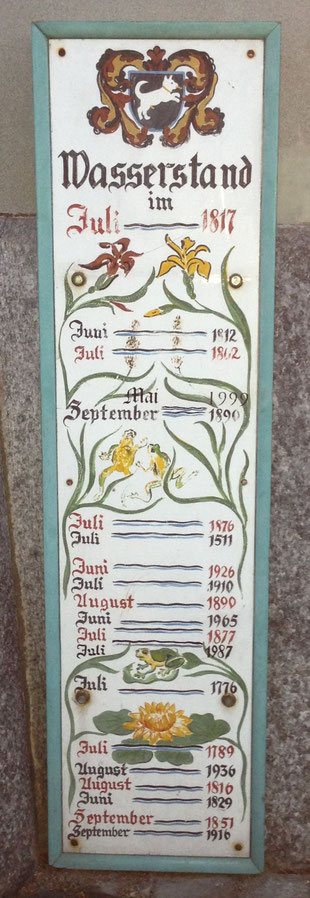 Wasserstand
im
Juli 1817
Juni 1812
Juli 1862
Mai 1999
September 1890
Juli 1876
Juli 1511
Juni 1926
Juli 1910
August 1890
Juni 1965
Juli 1877
Juli 1987
Juli 1776
Juli 1789
August 1936
August 1816
Juni 1829
September 1851
September 1916